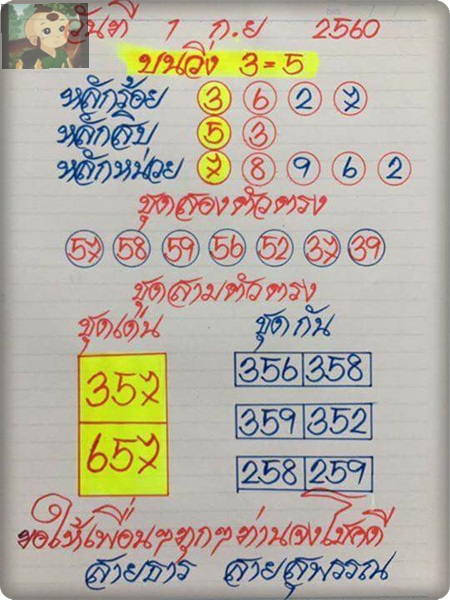 วันที่ 1 ก.ย 2560
บนวิ่ง 3=5
หลักร้อย 3 6 2 7
หลักสิบ 5 3
หลักหน่วย 7 8 9 6 2
ชุดสองตัวตรง
57 58 59 56 52 37 39
ชุดสามตัวตรง
ชุดเด่น ชุดกัน
357 356 358
657 359 352
258 259
ขอให้เพื่อนๆทุกๆท่านจงโชคดี
สายธาร สายสุพรรณ